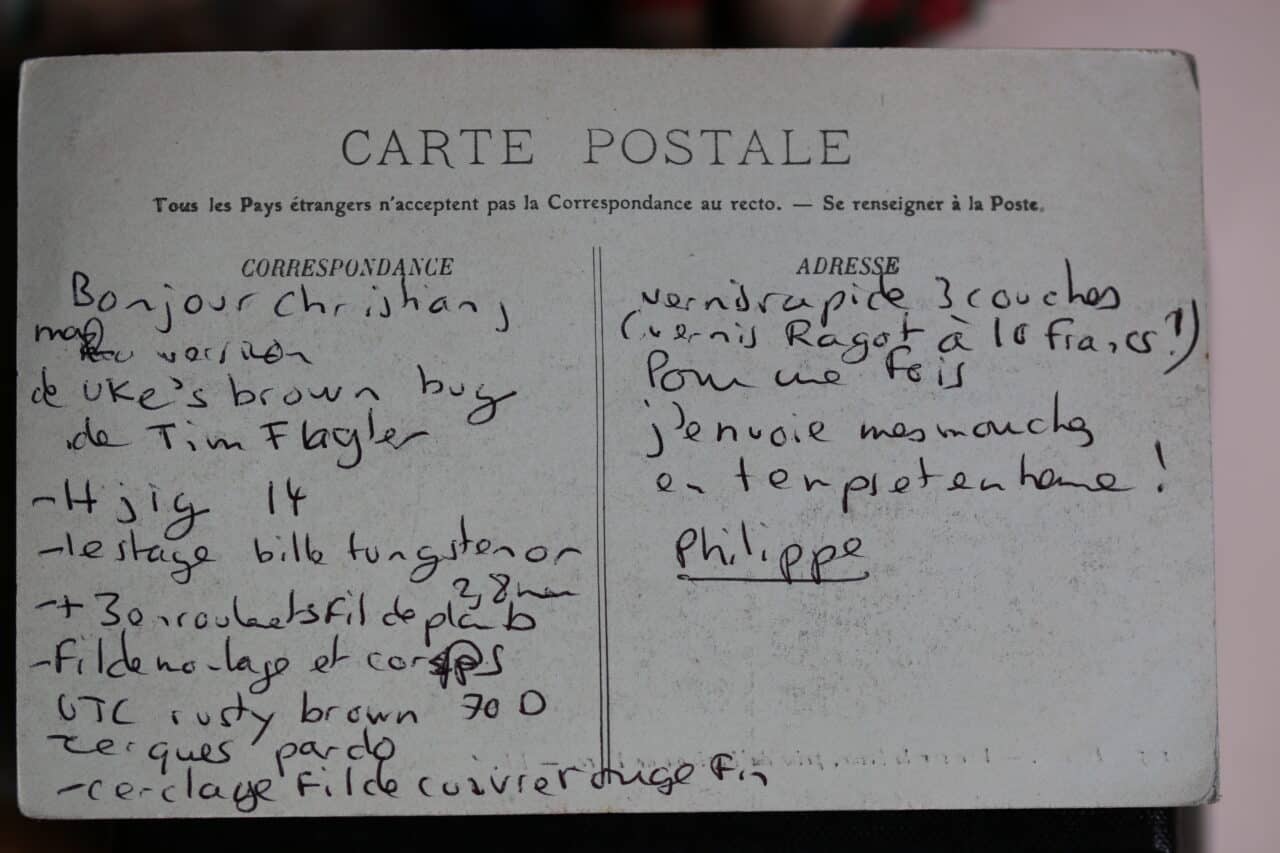 CARTE POSTALE
Tous les Pays étrangers n'acceptent pas la Correspondance au recto. — Se renseigner à la Poste.
CORRESPONDANCE
Bonjour Christian,
ma
version
de UKe's brown bug
de Tim Flagler
- H jig 14
- lestage bille tungsten or
2,8 mm
- + 3 enroulements fil de plomb
- Fil de montage et corps
UTC rusty brown 70 D
cerques pardo
- cerclage Fil de cuivre rouge Fin
ADRESSE
vernis rapide 3 couches
(vernis Ragot à 10 francs ?)
Pour une fois
j'envoie mes mouches
en temps et en heure !
Philippe